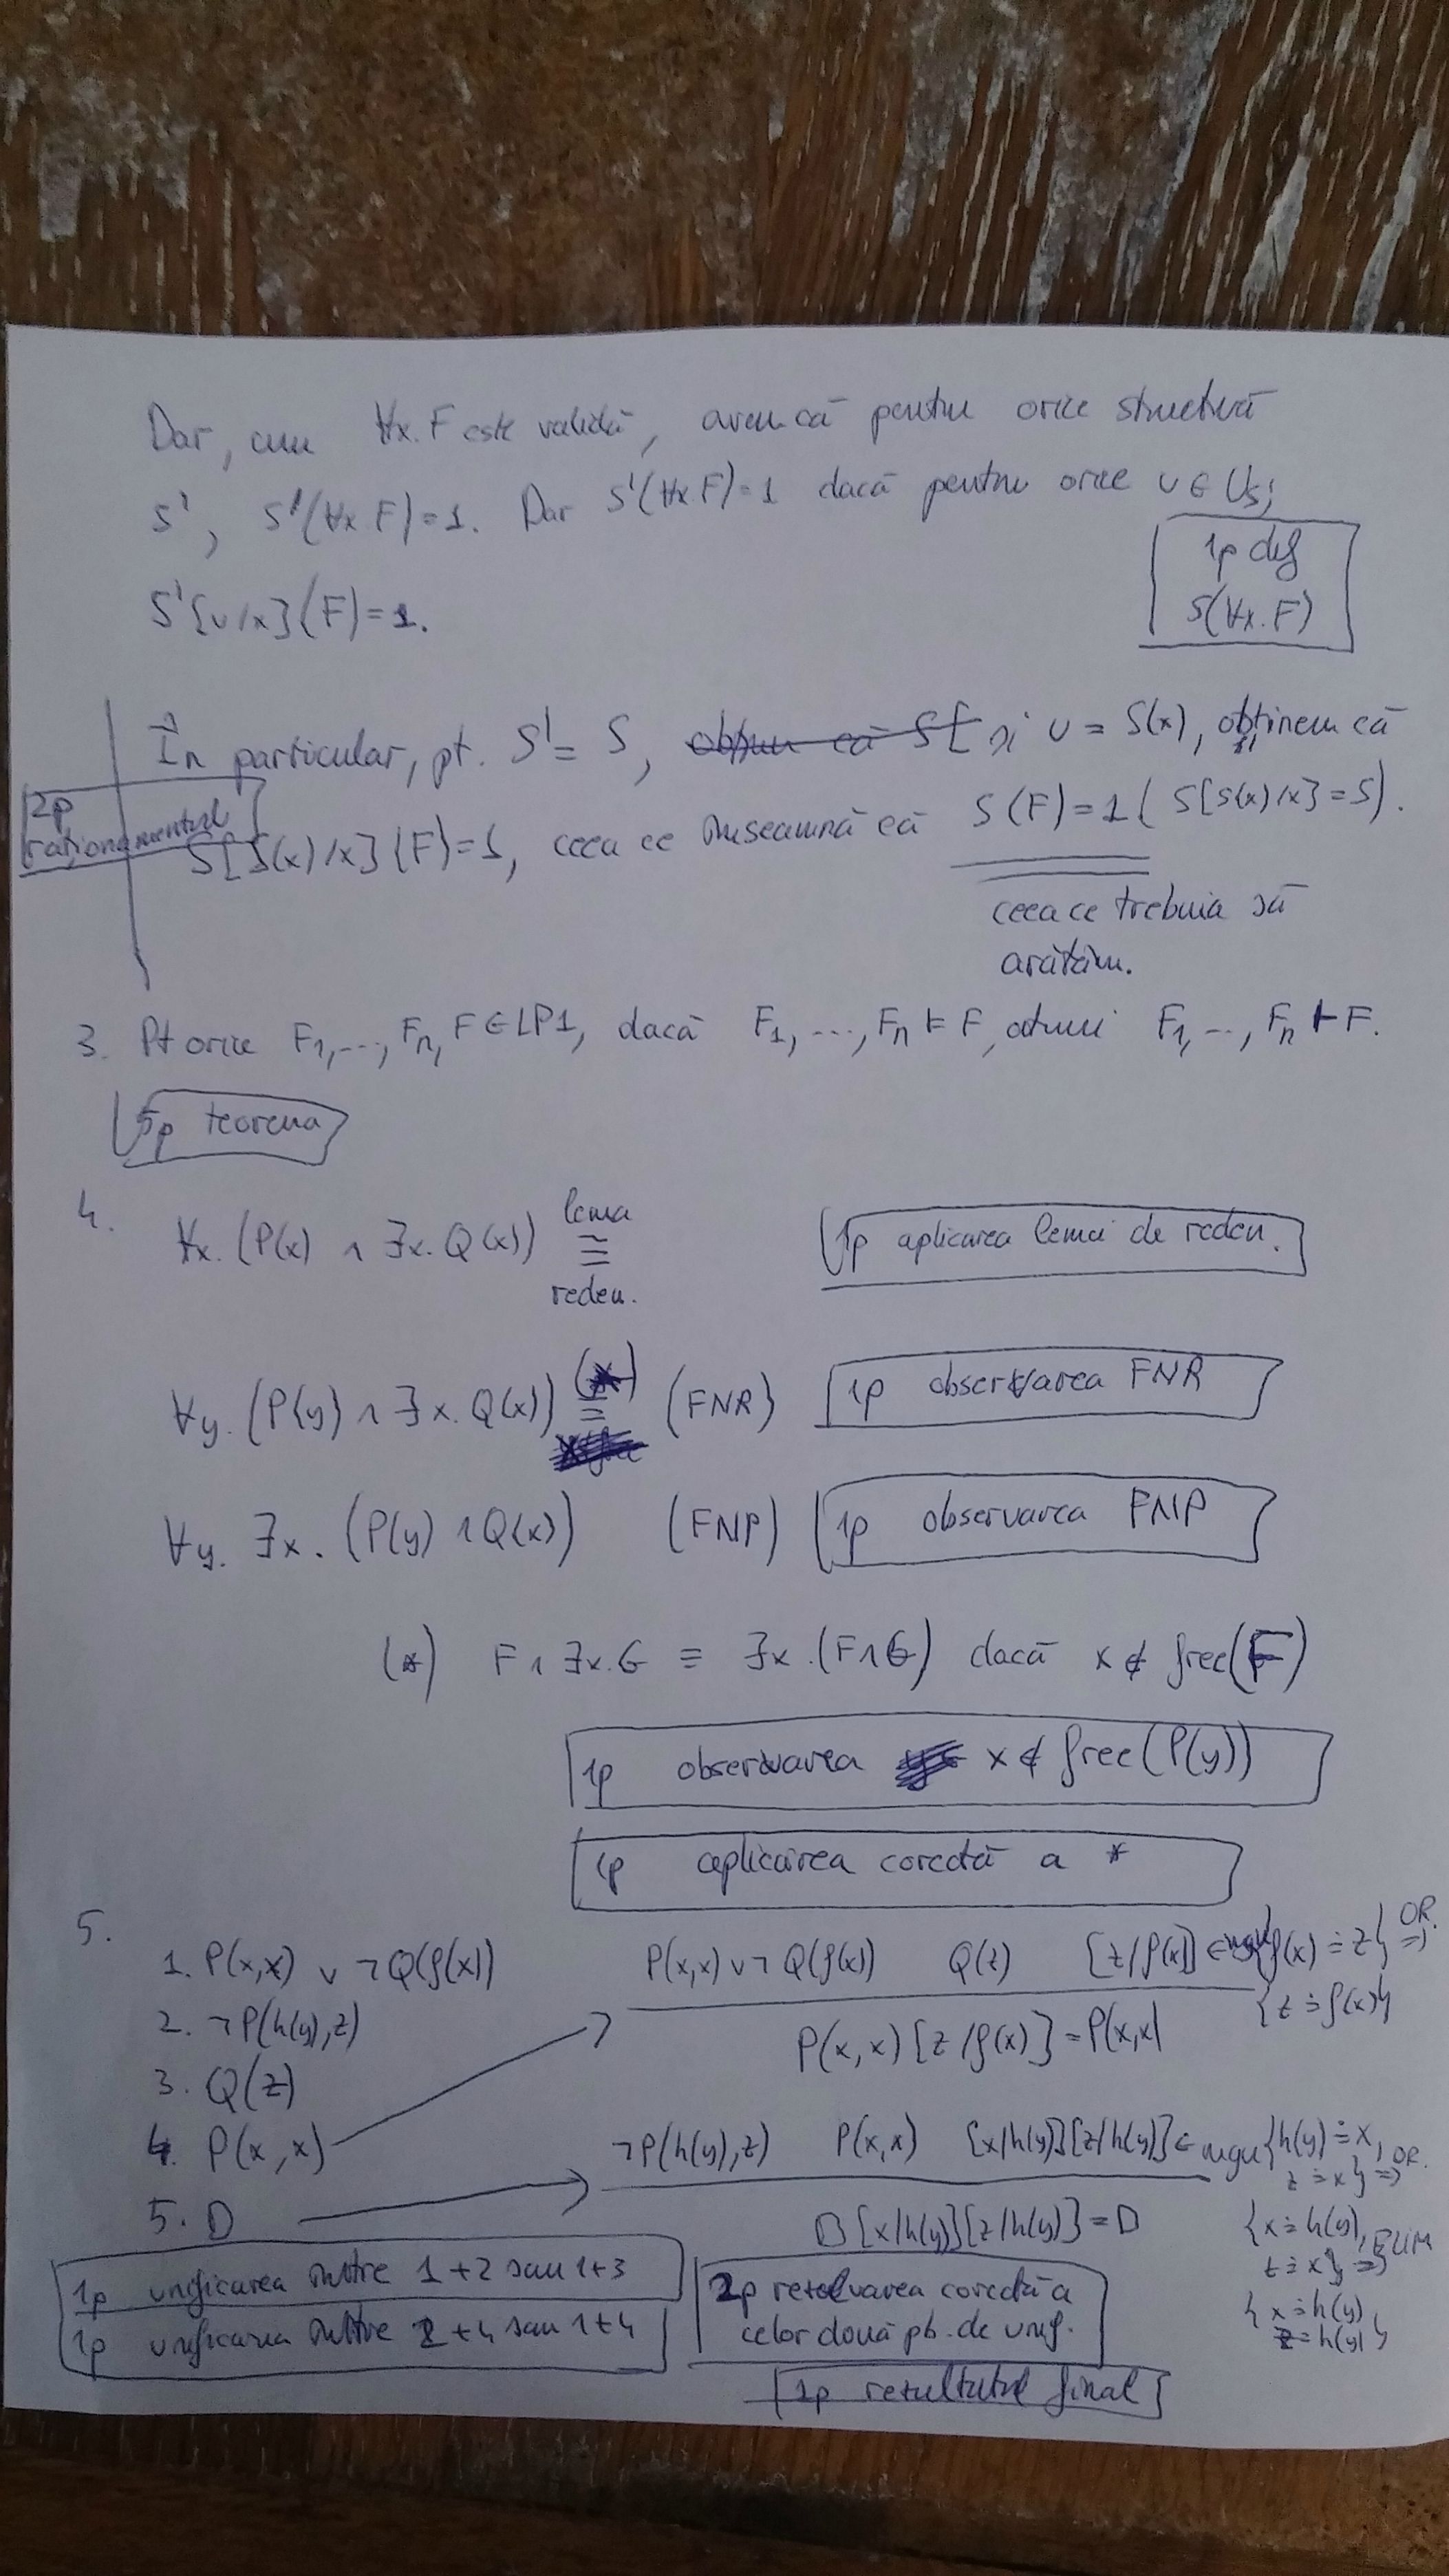 Dar, cum ∀x.F este validă, avem că pentru orice structură
S', S'(∀x.F)=1. Dar S'(∀x.F)=1 dacă pentru orice u ∈ U_S',
1p def
S(∀x.F)
S'[u/x](F)=1.
În particular, pt. S' = S, și u = S(x), obținem că
2p
raționamentul
S[S(x)/x](F)=1, ceea ce înseamnă că S(F)=1 (S[S(x)/x]=S).
ceea ce trebuia să
arătăm.
3. Pt orice F1,..., Fn, F ∈ LP1, dacă F1, ..., Fn ⊨ F, atunci F1, .., Fn ⊢ F.
5p teorema
4.
∀x. (P(x) ∧ ∃x. Q(x)) lema ≡ reden.
1p aplicarea lemei de reden.
∀y. (P(y) ∧ ∃x. Q(x)) (*) ≡ (FNR)
1p observarea FNR
∀y. ∃x. (P(y) ∧ Q(x)) (FNP)
1p observarea FNP
(*) F ∧ ∃x.G ≡ ∃x.(F∧G) dacă x ∉ free(F)
1p observarea x ∉ free(P(y))
1p aplicarea corectă a *
5.
1. P(x,x) ∨ ¬Q(f(x))
2. ¬P(h(y),z)
3. Q(z)
4. P(x,x)
5. □
P(x,x) ∨ ¬Q(f(x)) Q(z) [z/f(x)] ∈ mgu{f(x) ≐ z} OR. ⇒
{z ≐ f(x)}
P(x,x)[z/f(x)] = P(x,x)
¬P(h(y),z) P(x,x) [x/h(y)][z/h(y)] ∈ mgu{h(y) ≐ x,
z ≐ x} OR. ⇒
□[x/h(y)][z/h(y)] = □
{x ≐ h(y),
z ≐ x} ELIM ⇒
{x ≐ h(y)
z ≐ h(y)}
1p unificarea între 1+2 sau 1+3
1p unificarea între 2+4 sau 1+4
2p rezolvarea corectă a
celor două pb. de unif.
1p rezultatul final